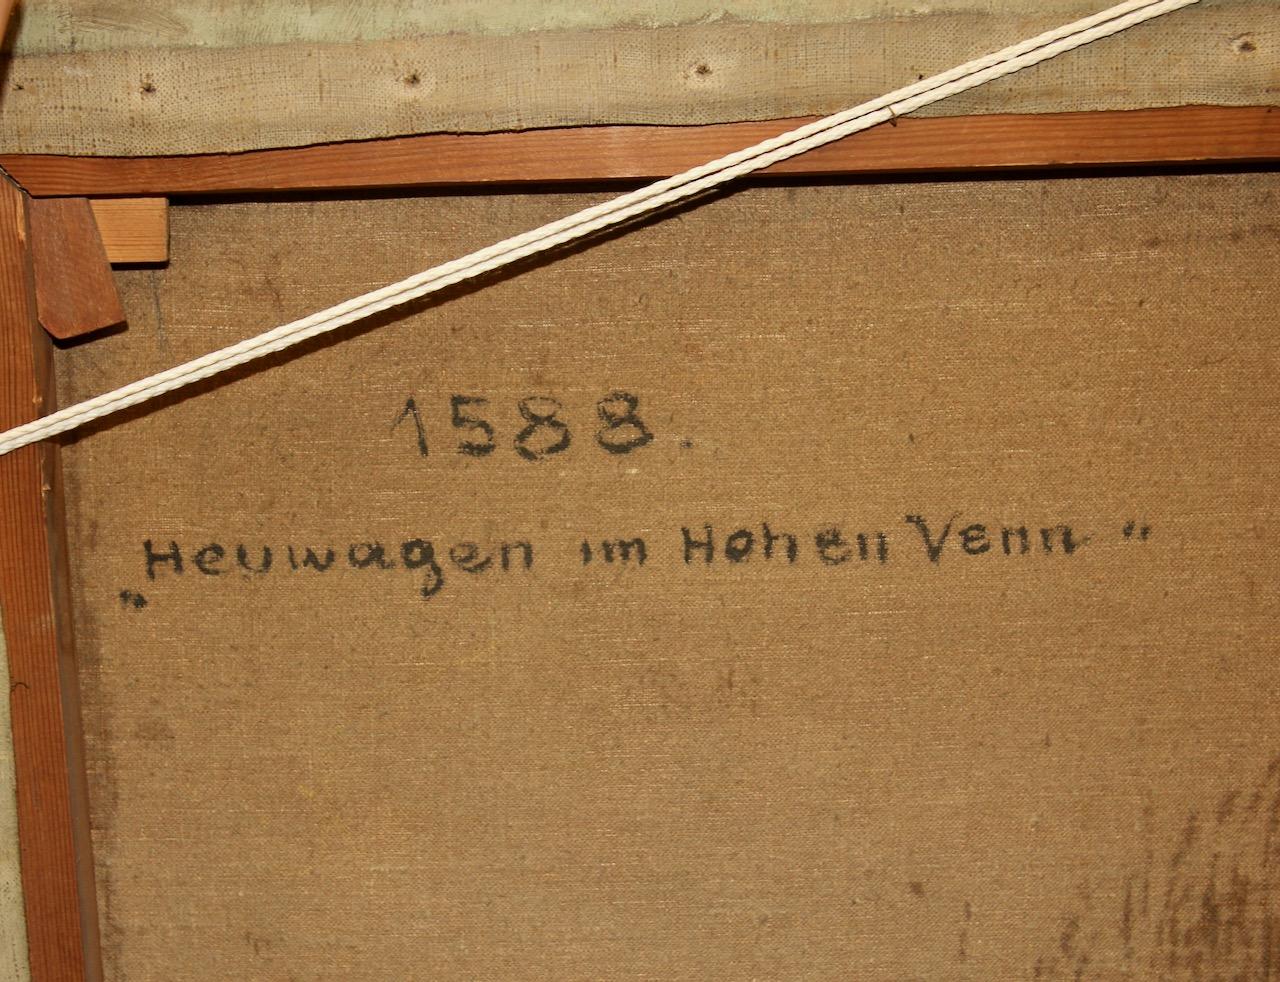 1588.
„Heuwagen im Hohen Venn“